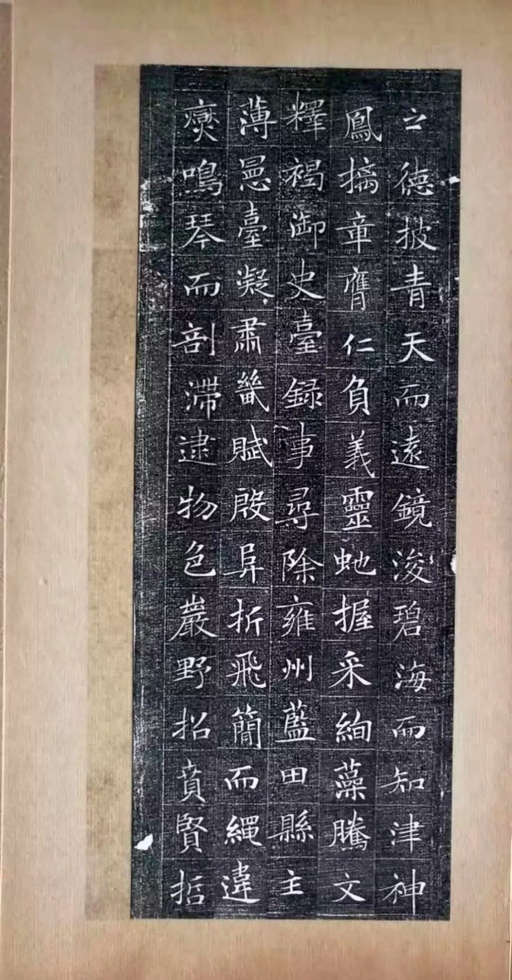 之德披青天而遠鏡浚碧海而知津神
鳳摛章膺仁負義靈虵握采絢藻騰文
釋褐御史臺録事尋除雍州藍田縣主
薄曷臺凝肅畿賦殷异折飛簡而繩違
爕鳴琴而剖滯逮物色巖野招賁賢哲